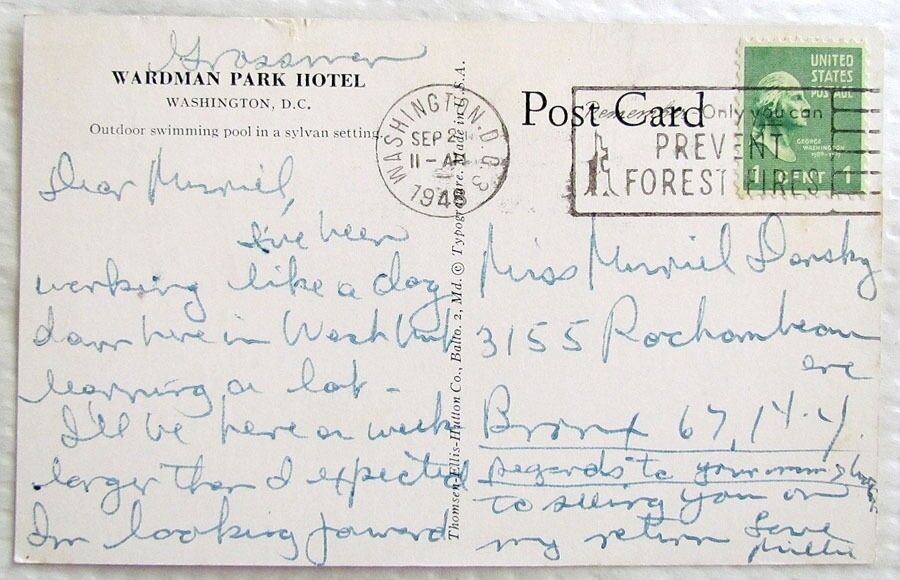 Grossman
WARDMAN PARK HOTEL
WASHINGTON, D.C.
Outdoor swimming pool in a sylvan setting.
Dear Murriel,
I've been
working like a dog
down here in Wash but
learning a lot -
I'll be here a week
longer than I expected
I'm looking forward
Thomsen-Ellis-Hutton Co., Balto. 2, Md. © Typogravure. Made in U.S.A.
WASHINGTON, D.C. 3
SEP 2
11 - AM
1948
Post Card
Remember Only you can
PREVENT
FOREST FIRES
UNITED
STATES
POSTAGE
GEORGE
WASHINGTON
1 CENT 1
Miss Murriel Dansky
3155 Rochambeau
ave
Bronx 67, N.Y.
regards to your mom &
to seeing you on
my return Love
Millie